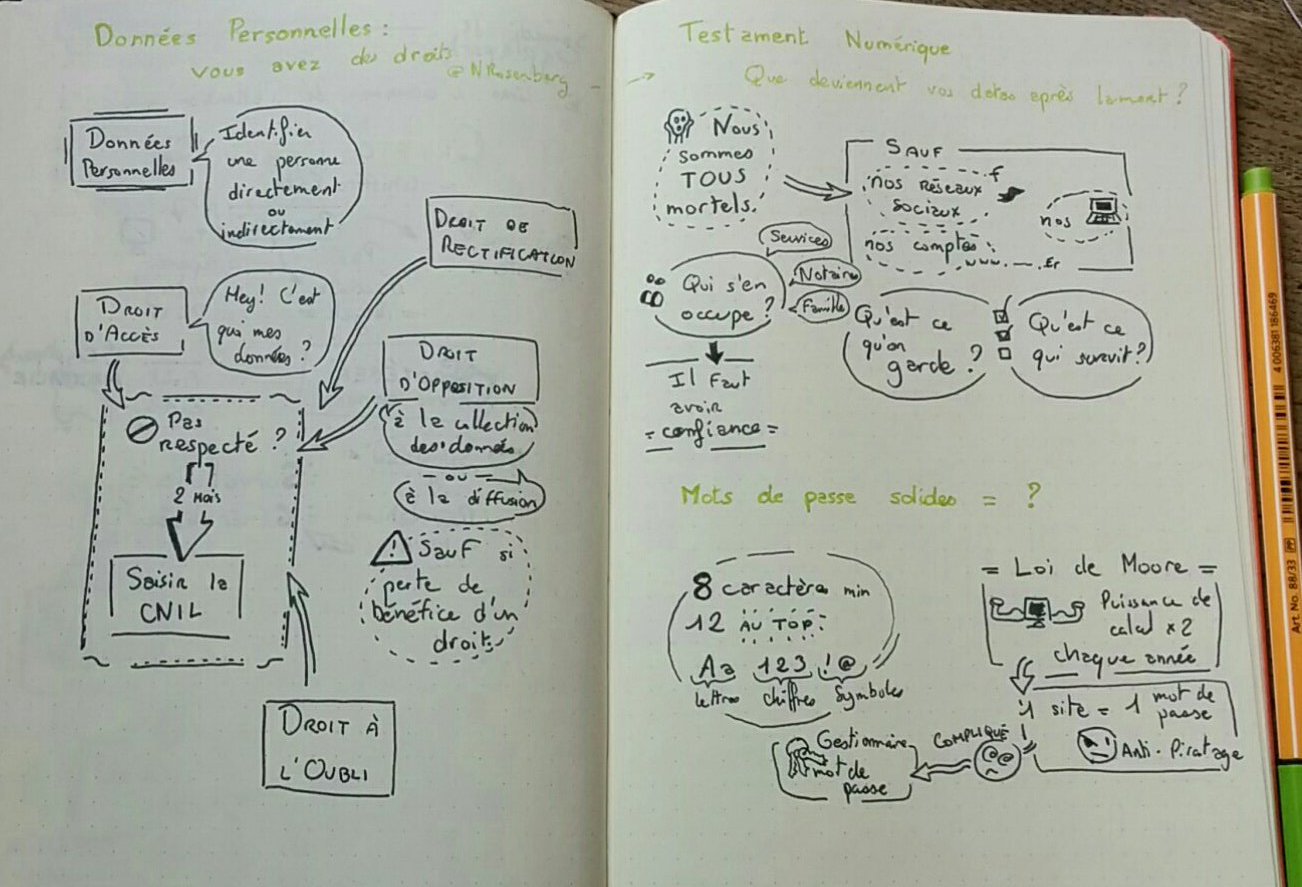 Données Personnelles :
vous avez des droits
@NRosenberg
Données
Personnelles
Identifier
une personne
directement
ou
indirectement
DROIT DE
RECTIFICATION
DROIT
D'ACCÈS
Hey! C'est
qui mes
données ?
DROIT
D'OPPOSITION
à la collection
des données
ou
à la diffusion
Sauf si
perte de
bénéfice d'un
droit
Pas
respecté ?
2 MOIS
Saisir la
CNIL
DROIT À
L'OUBLI
Testament Numérique
Que deviennent vos datas après la mort ?
Nous
sommes
TOUS
mortels.
SAUF
nos Réseaux
sociaux
f
nos
nos comptes
www. .fr
Services
Notaire
Famille
Qui s'en
occupe ?
Il Faut
avoir
= confiance =
Qu'est ce
qu'on
garde ?
Qu'est ce
qui survit ?
Mots de passe solides = ?
8 caractères min
12 AU TOP :
Aa 123 !@
lettres chiffres Symboles
= Loi de Moore =
Puissance de
calcul x2
chaque année
1 site = 1 mot de
passe !
Anti-Piratage
COMPLIQUÉ
Gestionnaire
mot de
passe
4 006381 186469
Art. No. 88/33 PP